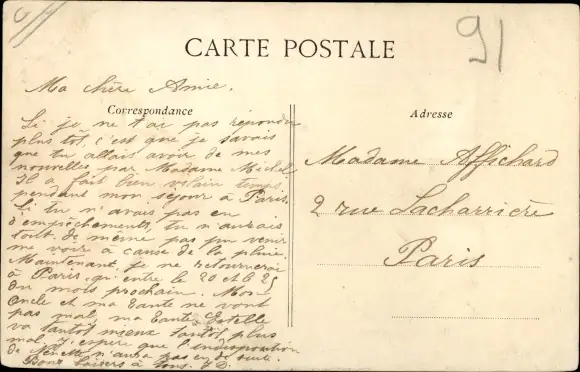 91
CARTE POSTALE
Ma chère Amie.
Correspondance
Si je ne t'ai pas répondu
plus tôt, c'est que je savais
que tu allais avoir de mes
nouvelles par Madame Michel
Il a fait bien vilain temps
pendant mon séjour à Paris.
Si tu n'avais pas eu
d'empêchements, tu n'aurais
tout de même pas pu venir
me voir à cause de la pluie.
Maintenant, je ne retournerai
à Paris qu'entre le 20 et le 25
du mois prochain. Mon
Oncle et ma Tante ne vont
pas mal, ma Tante Estelle
va tantôt mieux tantôt plus
mal. J'espère que l'indisposition
de Nénette n'aura pas eu de suite.
Bons baisers à tous. J.D.
Adresse
Madame Affichard
2 rue Lacharrière
Paris